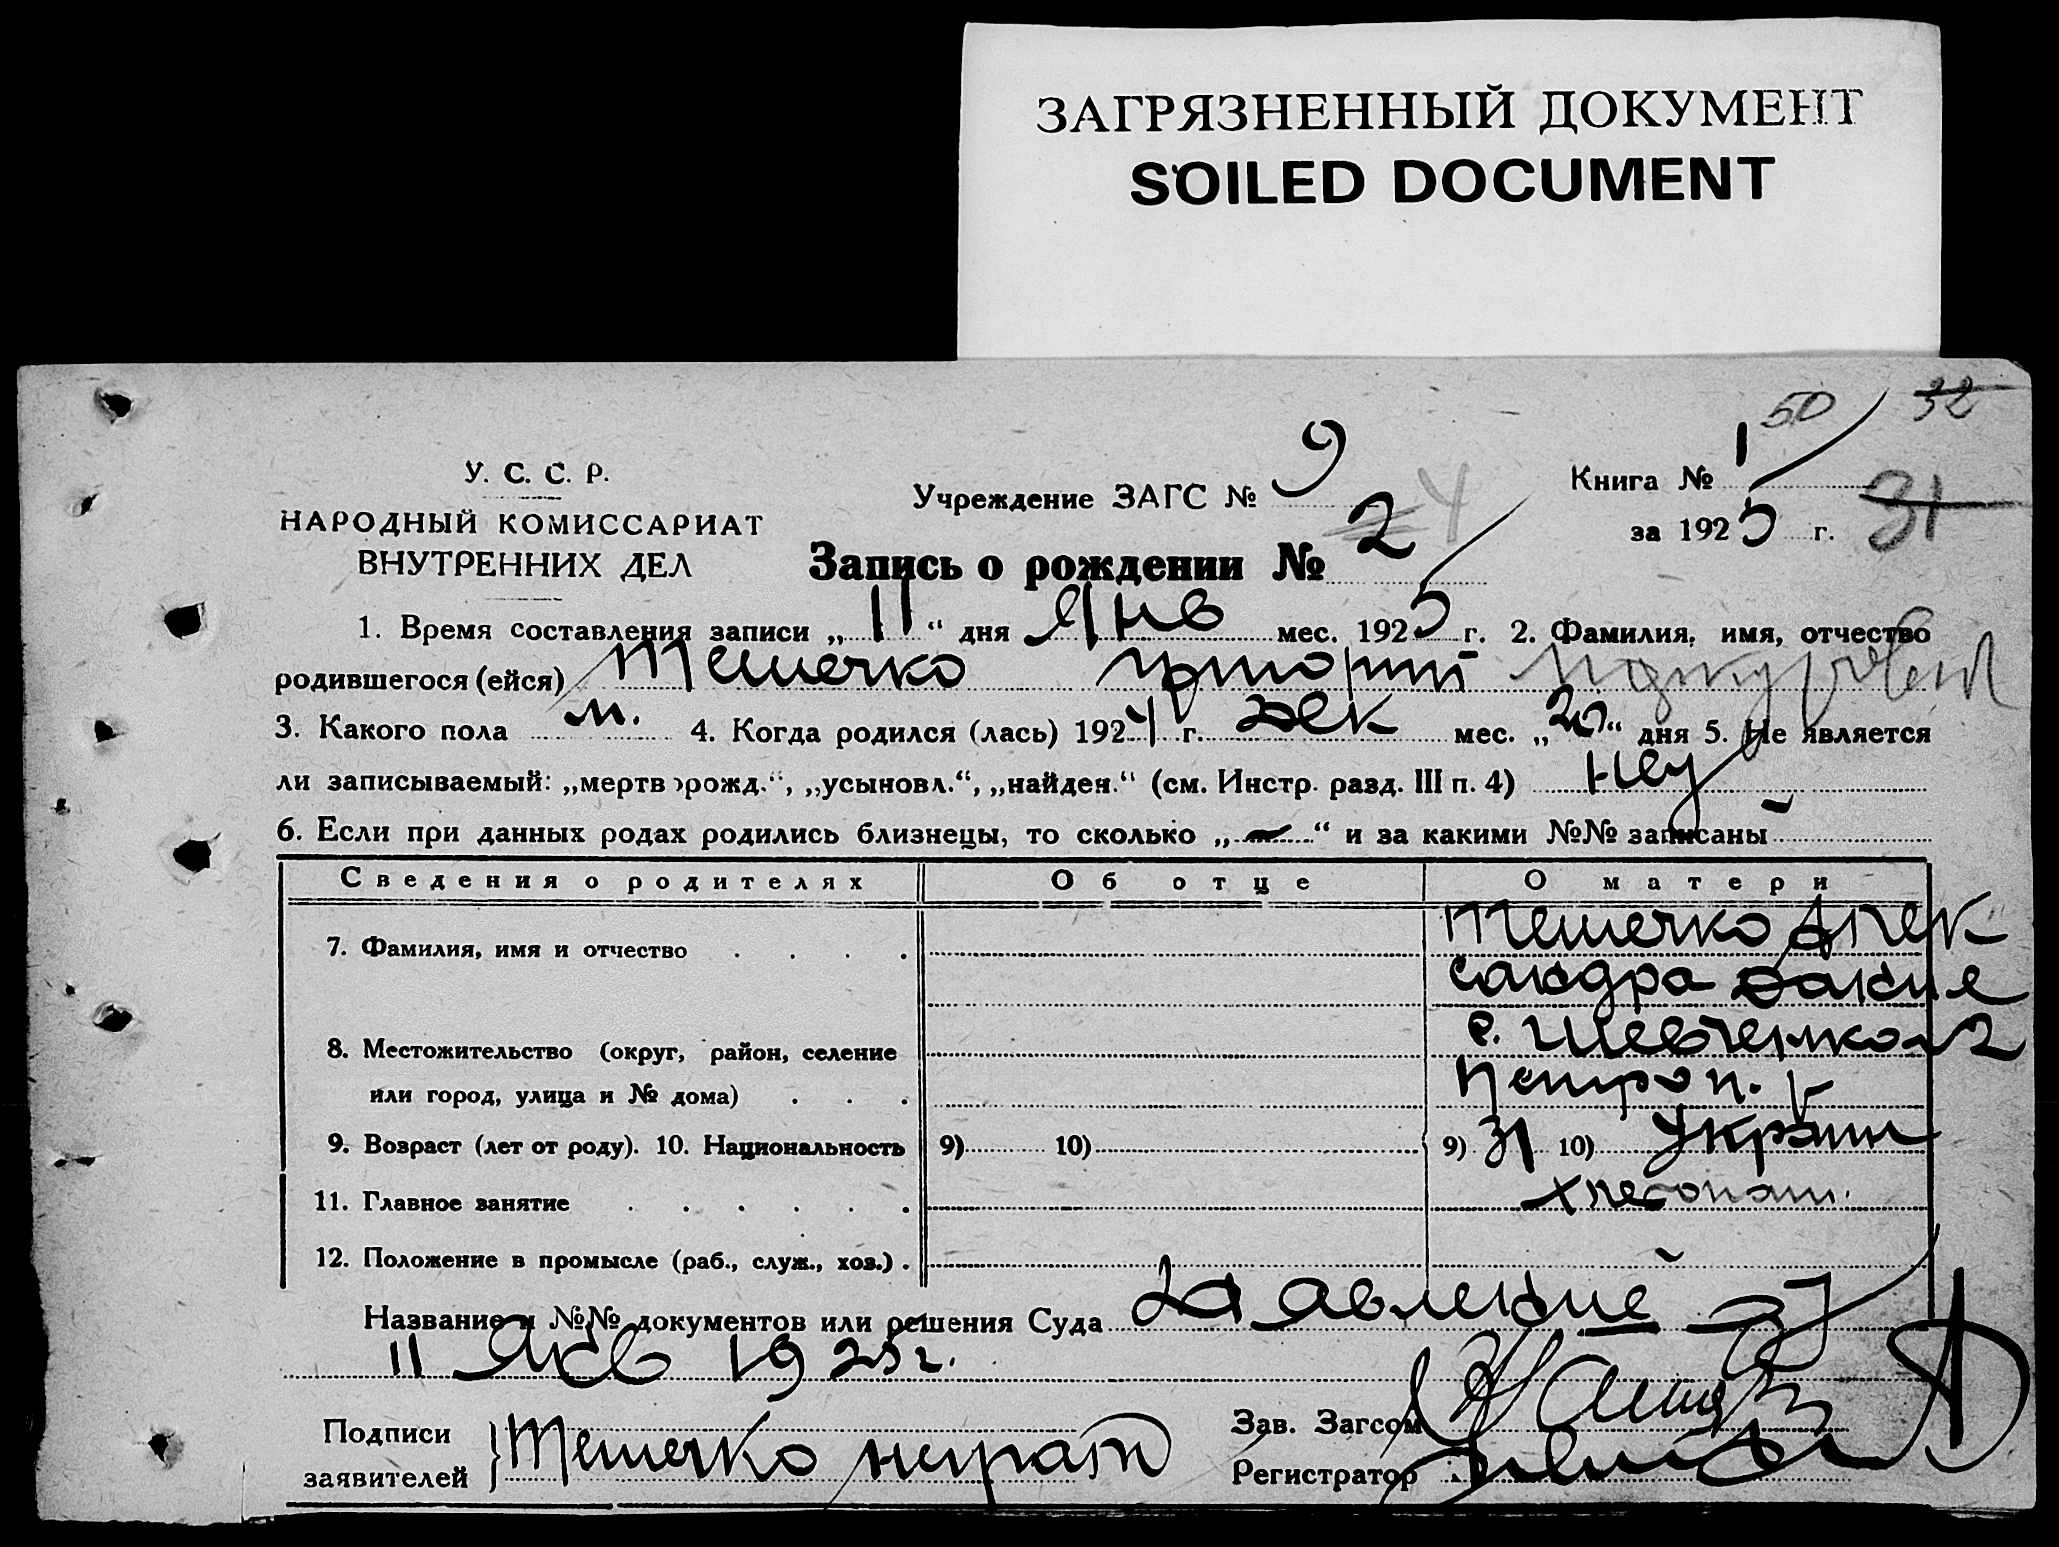 ЗАГРЯЗНЕННЫЙ ДОКУМЕНТ
SOILED DOCUMENT
50 32
У. С. С. Р.
НАРОДНЫЙ КОМИССАРИАТ
ВНУТРЕННИХ ДЕЛ
Учреждение ЗАГС № 9
Книга № 1
за 1925 г. 31
4
Запись о рождении № 2
1. Время составления записи „11“ дня Янв мес. 1925 г. 2. Фамилия, имя, отчество
родившегося (ейся) Тешечко
3. Какого пола м. 4. Когда родился (лась) 1924 г. Дек мес. „20“ дня 5. Не является
ли записываемый: „мертворожд.“, „усыновл.“, „найден.“ (см. Инстр. разд. III п. 4) нет
6. Если при данных родах родились близнецы, то сколько „—“ и за какими №№ записаны
Сведения о родителях Об отце О матери
7. Фамилия, имя и отчество Тешечко Алек
сандра
8. Местожительство (округ, район, селение
или город, улица и № дома) Петроп. р
9. Возраст (лет от роду). 10. Национальность 9) 10) 9) 31 10)
11. Главное занятие
12. Положение в промысле (раб., служ., хоз.)
Название и №№ документов или решения Суда Заявление
11 Янв 1925 г.
Подписи
заявителей Тешечко
Зав. Загсом
Регистратор